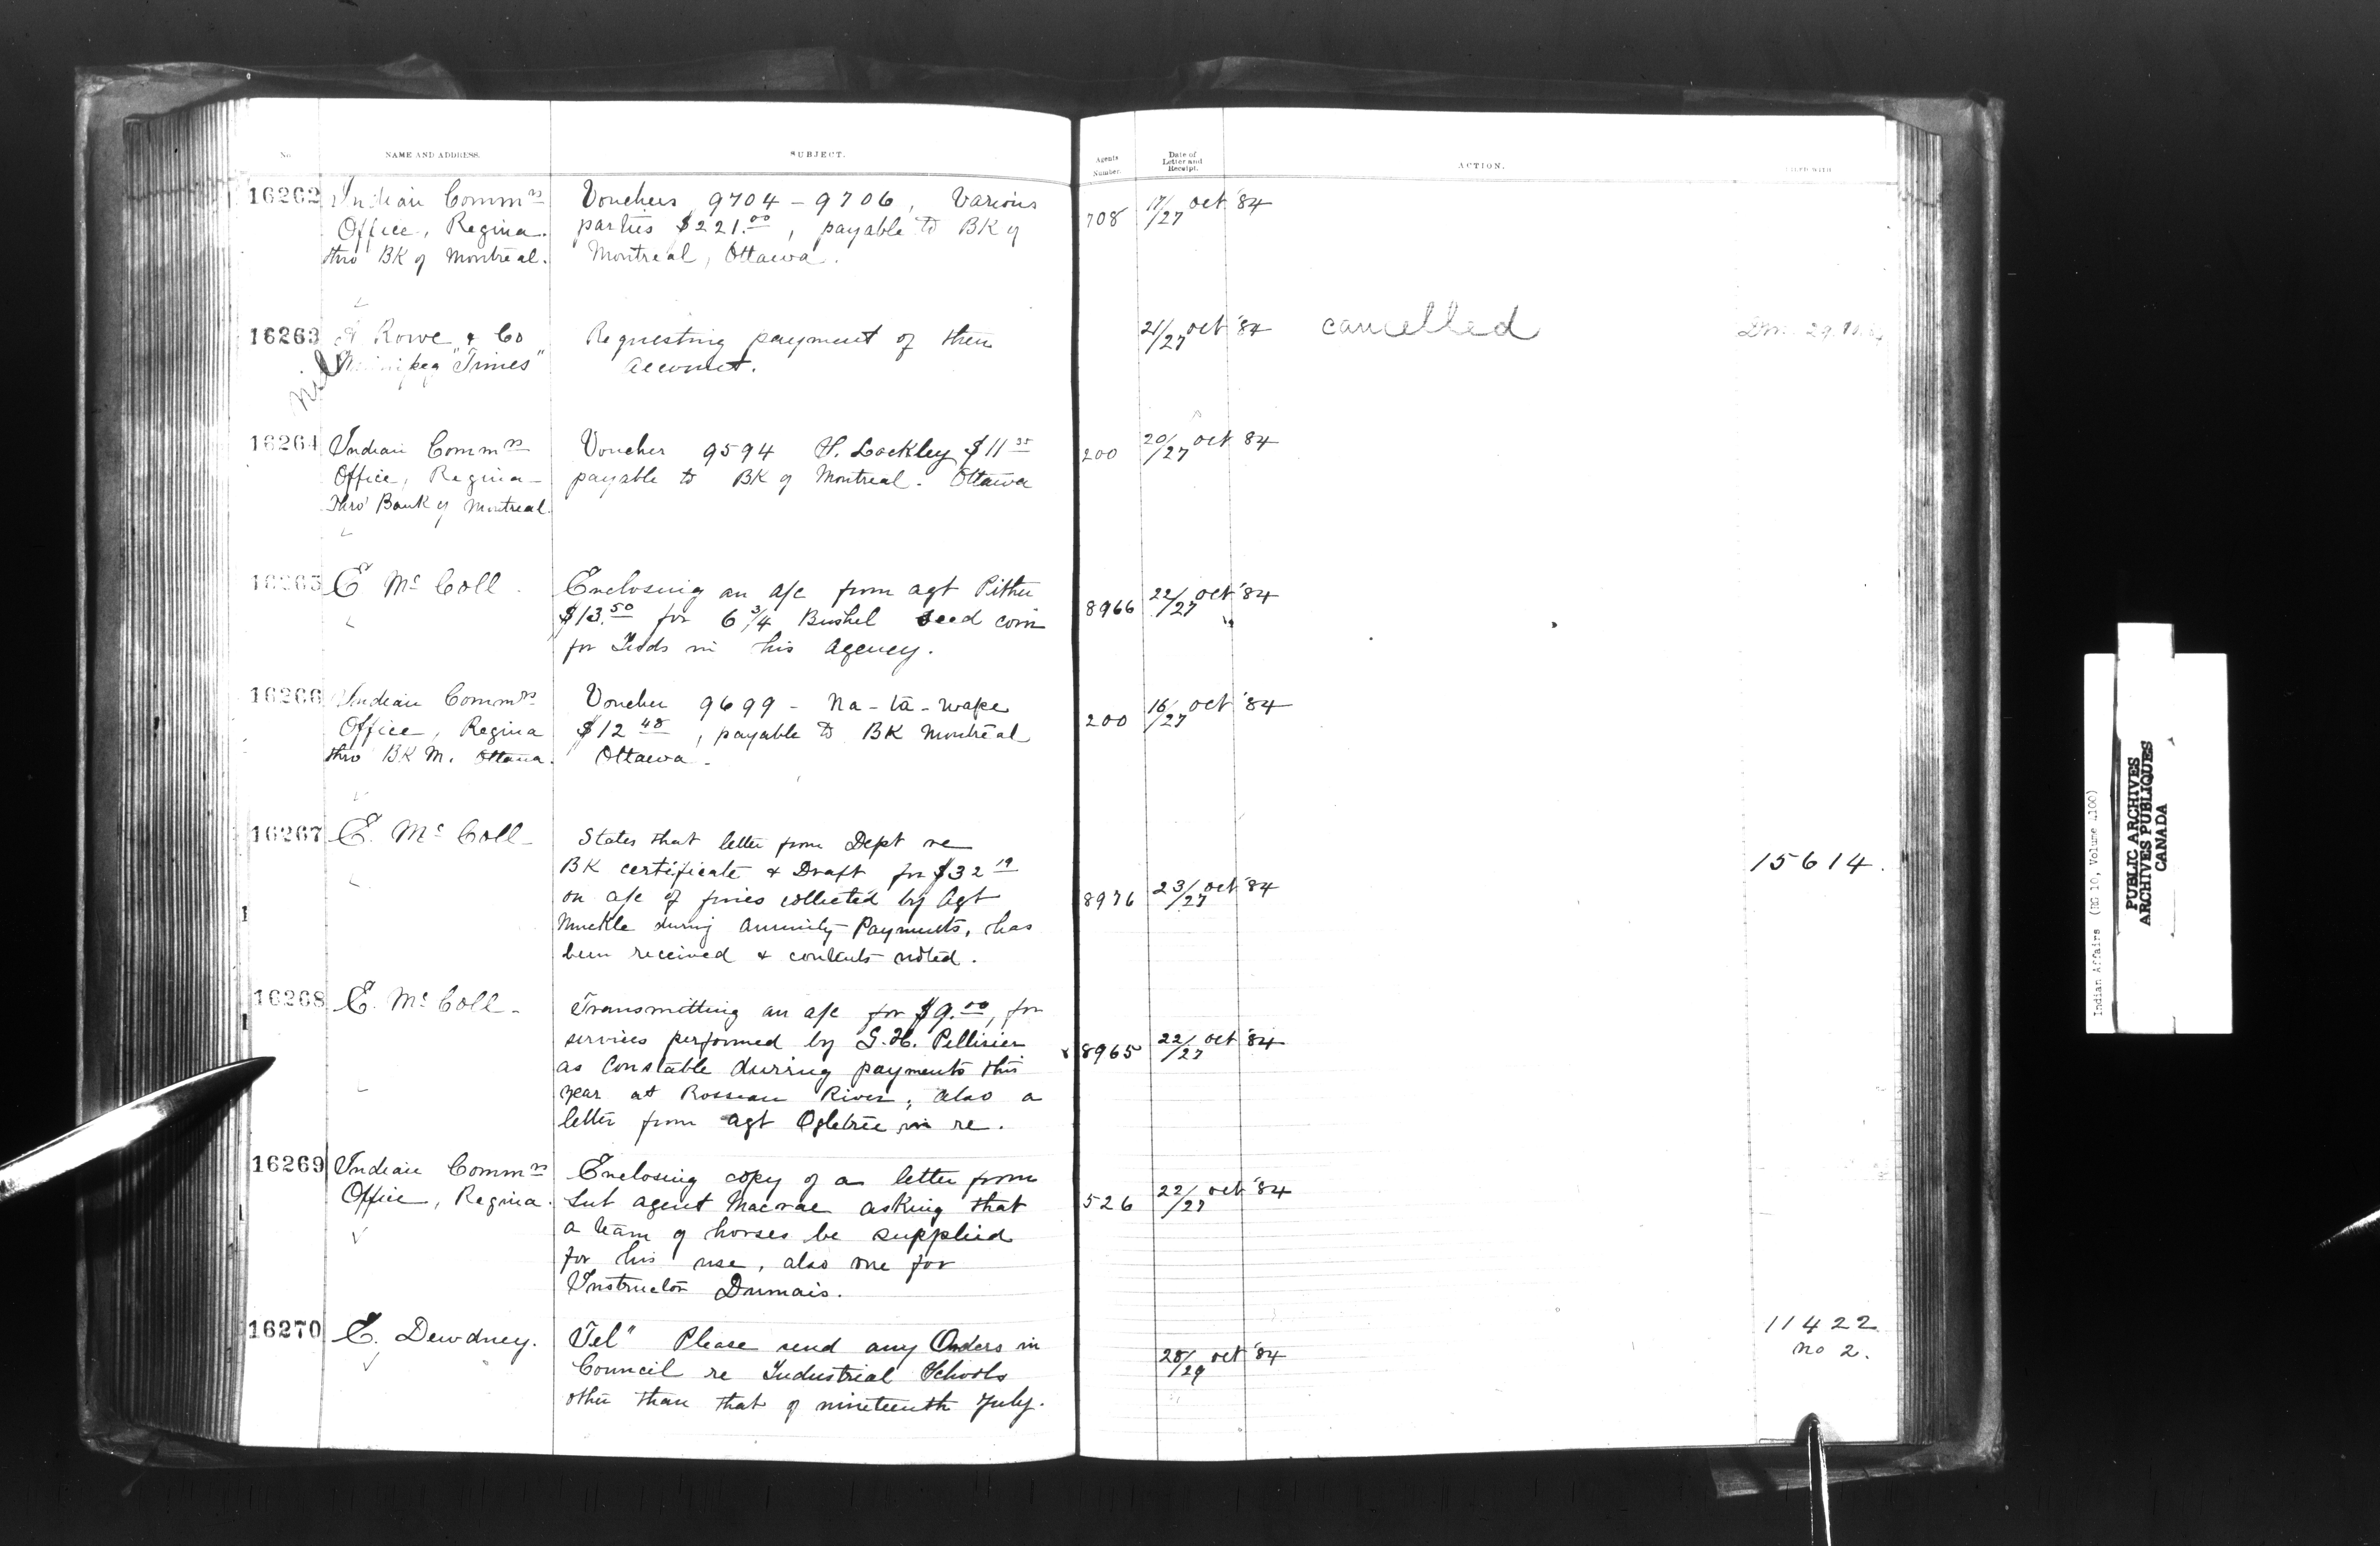 No.
NAME AND ADDRESS.
SUBJECT.
Agents Number.
Date of Letter and Receipt.
ACTION.
FILED WITH
16262
Indian Commrs
Office, Regina.
thro BK of Montreal.
Vouchers 9704 - 9706, Various
parties $221.00, payable to BK of
Montreal, Ottawa.
708
17/27 Oct '84
16263
Rowe & Co
Winnipeg "Times"
Nil
Requesting payment of their
account.
21/27 Oct '84
cancelled
16264
Indian Commrs
Office, Regina -
Thro' Bank of Montreal.
Voucher 9594 H. Lockley $11 35
payable to BK of Montreal. Ottawa
200
20/27 Oct 84
16265
E McColl.
Enclosing an a/c from agt Pither
$13.50 for 6 3/4 Bushel seed corn
for Inds in his Agency.
8966
22/27 Oct '84
16266
Indian Commrs
Office, Regina
thro' BK M. Ottawa.
Voucher 9699 - Na-ta-wape
$12 48, payable to BK Montreal
Ottawa.
200
16/27 Oct '84
16267
E. McColl -
States that letter from Dept re
BK certificate & Draft for $32 19
on a/c of fines collected by Agt
Muckle during Annuity Payments, has
been received & contents noted.
8976
23/27 Oct '84
15614.
16268
E. McColl -
Transmitting an a/c for $9.00, for
services performed by G. H. Pellisier
as Constable during payments this
year at Rosseau River, also a
letter from agt Ogletree in re.
x 8965
22/27 Oct '84
16269
Indian Commrs
Office, Regina.
Enclosing copy of a letter from
Sub agent Macrae asking that
a team of horses be supplied
for his use, also one for
Instructor Dumais.
526
22/27 Oct '84
16270
E. Dewdney.
Tel" Please send any Orders in
Council re Industrial Schools
other than that of nineteenth July.
28/29 Oct '84
11422
No 2.
Indian Affairs (RG 10, Volume 4100)
PUBLIC ARCHIVES
ARCHIVES PUBLIQUES
CANADA